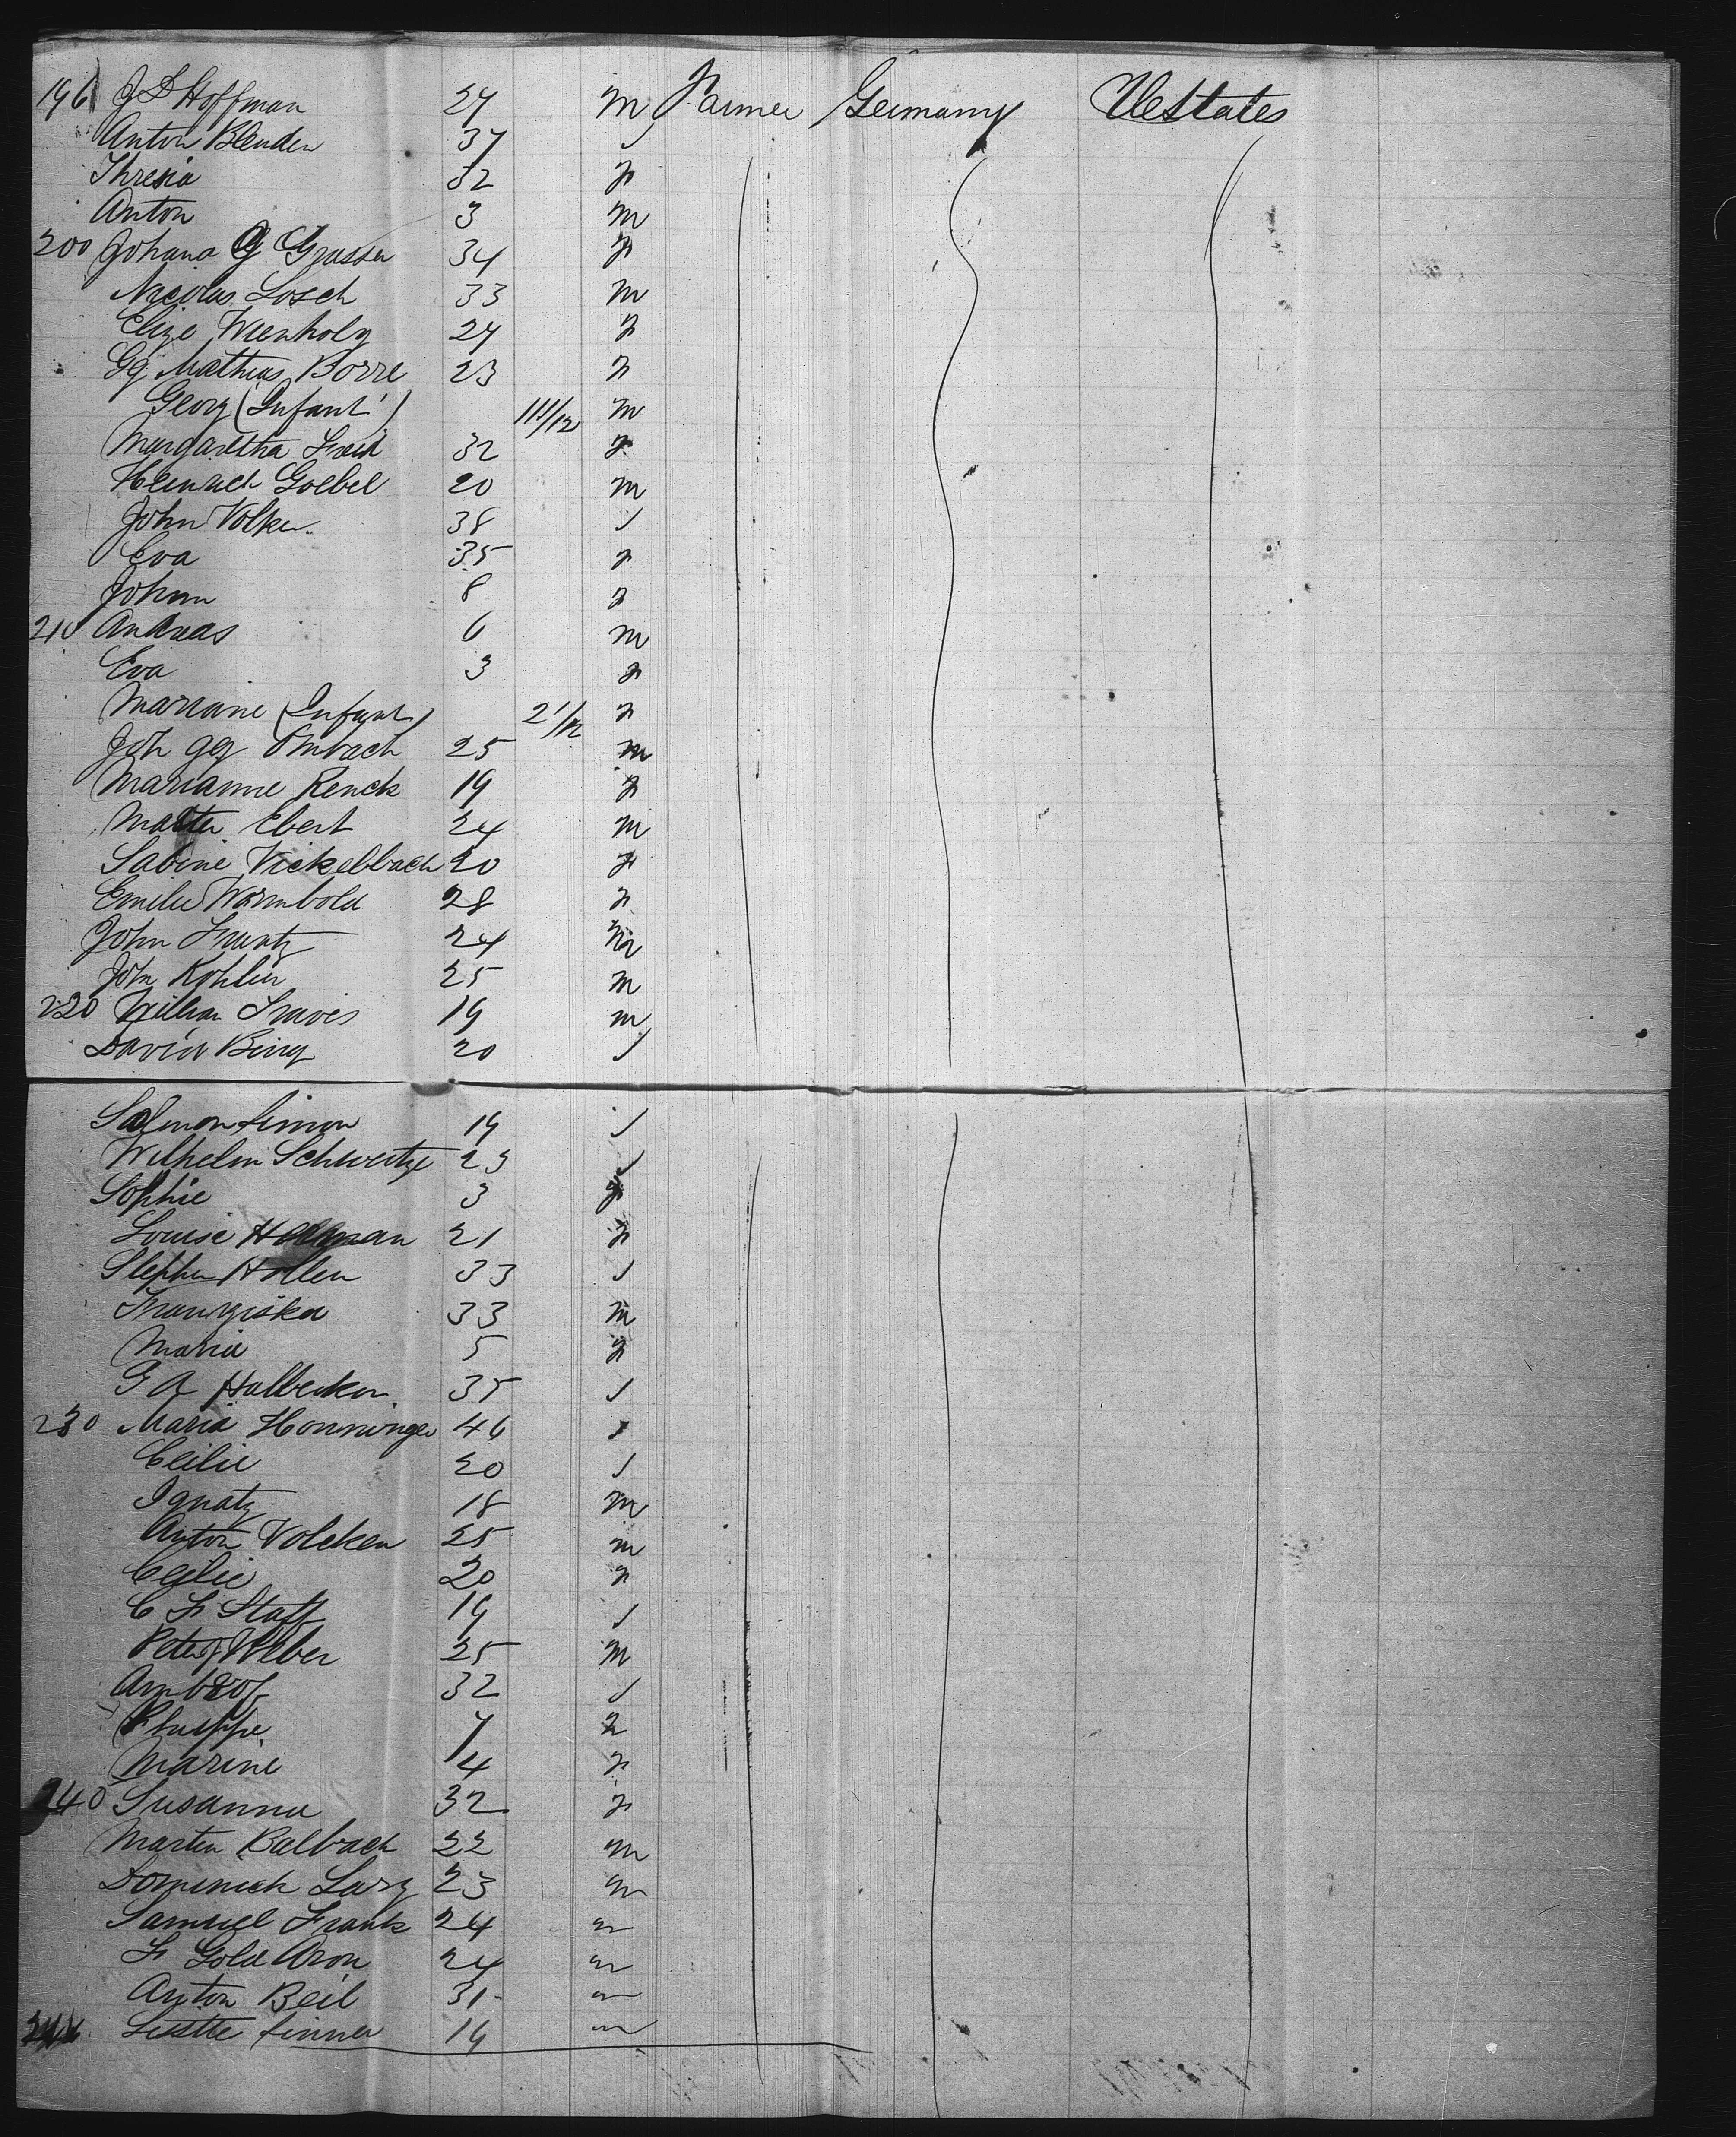 196 J D Hoffman 27 M Farmer Germany UeStates
Anton Blender 37 ✓
Thresia 32 F
Anton 3 M
200 Johana G Grasser 34 F
Nicolas Losch 33 M
Elize Wienholz 27 F
Gg Mathias Borre 23 F
Georg (Infant) 11/12 M
Margaretha Faid 32 F
Heinrich Goebel 20 M
John Volker 38 ✓
Eva 35 F
Johan 8 F
210 Andreas 6 M
Eva 3 F
Mariane (Infant) 2 1/12 F
Joh gg Ombach 25 M
Marianne Renck 19 F
Ebert 24 M
Sabine Vickelbach 20 F
Emilie Warmbold 28 F
John Frantz 24 M
Joh Kohler 25 M
220 William Travis 19 M
David Bing 20 ✓
Salmon Simon 19 ✓
Wilhelm Schweitze 23 ✓
Sophie 3 F
Louise 21 F
Stephen Hollen 33 ✓
Franziska 33 M
Maria 5 F
G A Halbecker 35 ✓
230 Maria Honninger 46 ✓
Cecilie 20 ✓
Ignatz 18 M
Anton Volcken 25 M
Cecilie 20 F
C F Staff 19 ✓
Peter Weber 25 M
32 ✓
Philippe 7
Marine 4 F
240 Susanna 32 F
Martin Balbach 22 M
Dominick Larg 23 M
Samuel Frank 24 M
F Gold Aron 24 M
Anton Beil 31
Lisette Sinner 19